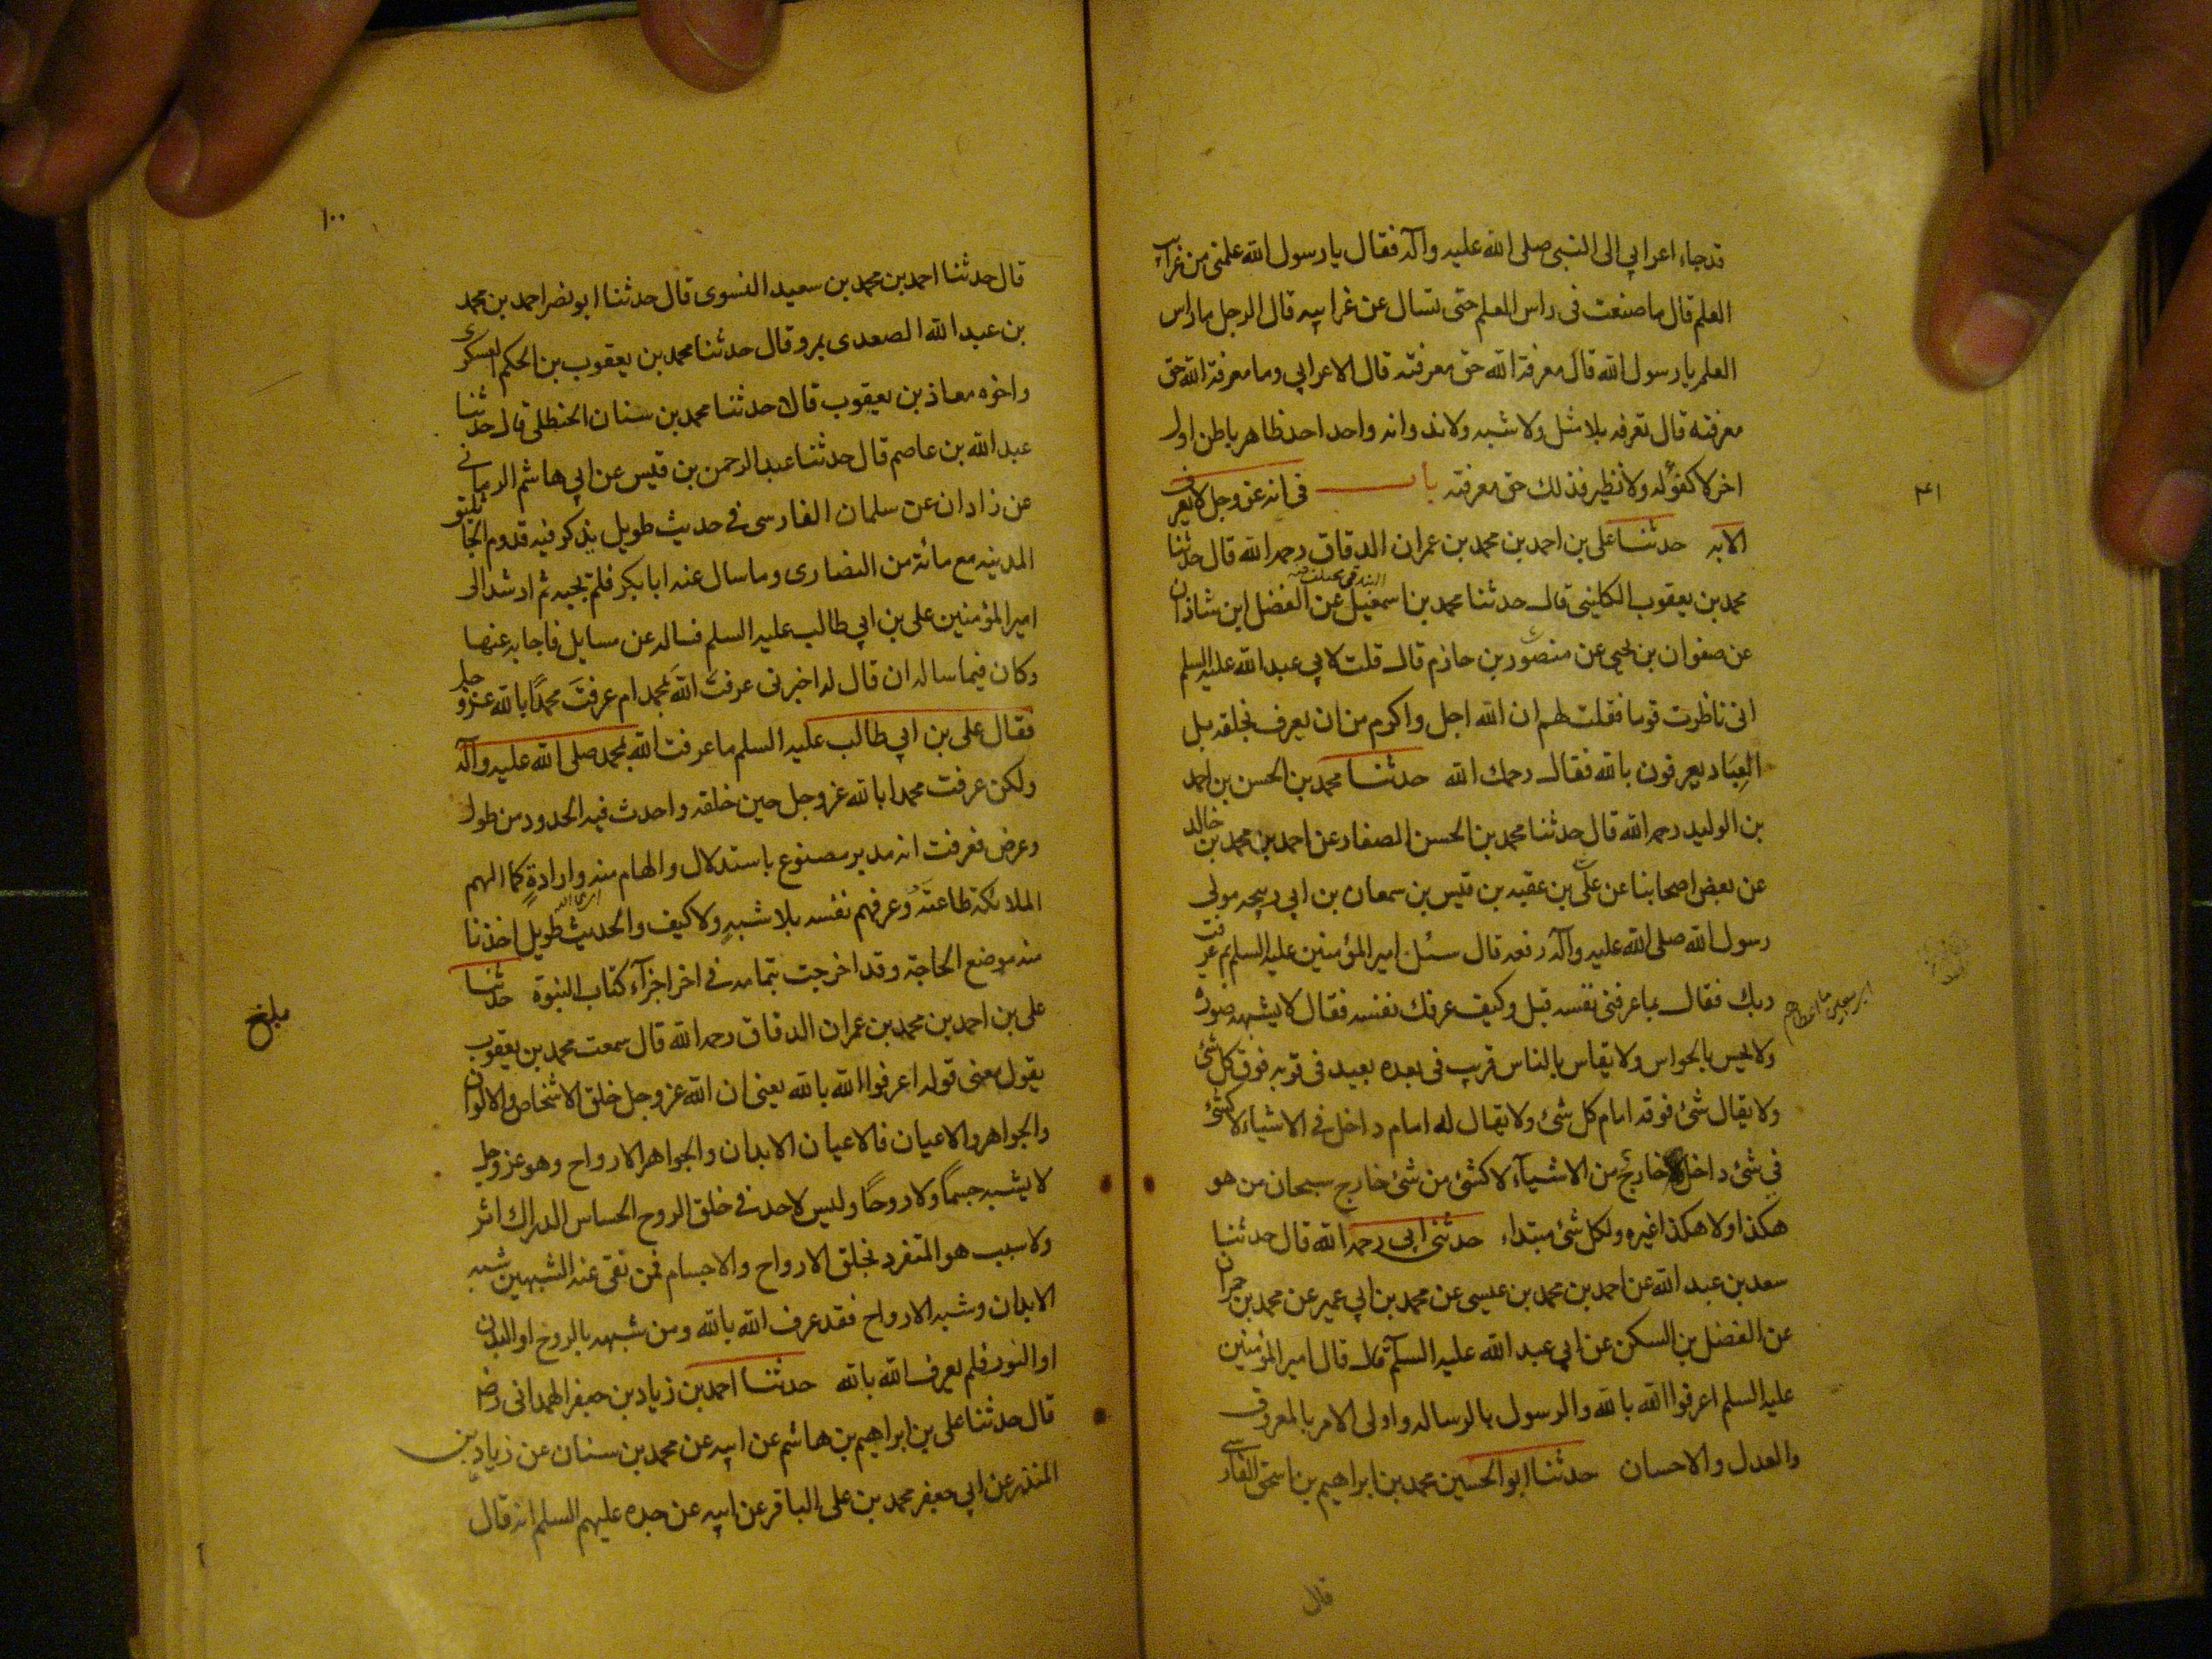 قد جاء اعرابي الى النبي صلى الله عليه وآله فقال يا رسول الله علمني من غرايب
العلم قال ما صنعت في راس العلم حتى تسال عن غرايبه قال الرجل ما راس
العلم يا رسول الله قال معرفة الله حق معرفته قال الاعرابي وما معرفة الله حق
معرفته قال تعرفه بلا مثل ولا شبه ولا ند وانه واحد احد ظاهر باطن اول
اخر لا كفؤ له ولا نظير فذلك حق معرفته باب في انه عز وجل لا يعرف
۴۱
الا به حدثنا علي بن احمد بن محمد بن عمران الدقاق رحمه الله قال حدثنا
محمد بن يعقوب الكليني قال حدثنا محمد بن اسمعيل عن الفضل ابن شاذان
عن صفوان بن يحيى عن منصور بن حازم قال قلت لابي عبد الله عليه السلم
اني ناظرت قوما فقلت لهم ان الله اجل واكرم من ان يعرف بخلقه بل
العباد يعرفون بالله فقال رحمك الله حدثنا محمد بن الحسن بن احمد
بن الوليد رحمه الله قال حدثنا محمد بن الحسن الصفار عن احمد بن محمد بن خالد
عن بعض اصحابنا عن علي بن عقبه بن قيس بن سمعان بن ابي ربيحه مولى
رسول الله صلى الله عليه وآله رفعه قال سئل امير المؤمنين عليه السلم بم عرفت
ربك فقال بما عرفني نفسه قيل وكيف عرفك نفسه فقال لا يشبهه صورة
ولا يحس بالحواس ولا يقاس بالناس قريب في بعده بعيد في قربه فوق كل شئ
ولا يقال شئ فوقه امام كل شئ ولا يقال له امام داخل في الاشياء لا كشئ
في شئ داخل خارج من الاشيآء لا كشئ من شئ خارج سبحان من هو
هكذا ولا هكذا غيره ولكل شئ مبتداء حدثني ابي رحمه الله قال حدثنا
سعد بن عبد الله عن احمد بن محمد بن عيسى عن محمد بن ابي عمير عن محمد بن حمران
عن الفضل بن السكن عن ابي عبد الله عليه السلم قال قال امير المؤمنين
عليه السلم اعرفوا الله بالله والرسول بالرساله واولى الامر بالمعروف
والعدل والاحسان حدثنا ابو الحسين محمد بن ابراهيم بن اسحق الفارسي
قال
۱۰۰
قال حدثنا احمد بن محمد بن سعيد النسوى قال حدثنا ابو نصر احمد بن محمد
بن عبد الله الصعدى بمرو قال حدثنا محمد بن يعقوب بن الحكم العسكرى
واخوه معاذ بن يعقوب قالا حدثنا محمد بن سنان الحنظلى قال حدثنا
عبد الله بن عاصم قال حدثنا عبد الرحمن بن قيس عن ابي هاشم الرمانى
عن زاذان عن سلمان الفارسى في حديث طويل يذكر فيه قدوم الجاثليق
المدينه مع مائة من النصارى وما سال عنه ابا بكر فلم يجبه ثم ارشد الى
امير المؤمنين علي بن ابي طالب عليه السلم فساله عن مسايل فاجابه عنها
وكان فيما ساله ان قال له اخبرنى عرفتَ اللهَ بمحمد ام عرفتَ محمدًا بالله عز وجل
فقال علي بن ابي طالب عليه السلم ما عرفت الله بمحمد صلى الله عليه وآله
ولكن عرفت محمدا بالله عز وجل حين خلقه واحدث فيه الحدود من طول
وعرض فعرفت انه مدبر مصنوع باستدلال والهام منه وارادةٍ كما الهم
الملائكة طاعته وعرفهم نفسه بلا شبهٍ ولا كيف والحديث طويل اخذنا
منه موضع الحاجة وقد اخرجت بتمامه في اخر اجزآء كتاب النبوة حدثنا
مبلغ
علي بن احمد بن محمد بن عمران الدقاق رحمه الله قال سمعت محمد بن يعقوب
يقول معنى قوله اعرفوا الله بالله يعنى ان الله عز وجل خلق الاشخاص والالوان
والجواهر والاعيان فالاعيان الابدان والجواهر الارواح وهو عز وجل
لا يشبه جسمًا ولا روحًا وليس لاحد في خلق الروح الحساس الدراك اثر
ولا سبب هو المتفرد بخلق الارواح والاجسام فمن نفى عنه الشبهين شبه
الابدان وشبه الارواح فقد عرف الله بالله ومن شبهه بالروح او البدن
او النور فلم يعرف الله بالله حدثنا احمد بن زياد بن جعفر الهمدانى رضه
قال حدثنا علي بن ابراهيم بن هاشم عن ابيه عن محمد بن سنان عن زياد بن
المنذر عن ابي جعفر محمد بن على الباقر عن ابيه عن جده عليهم السلم انه قال